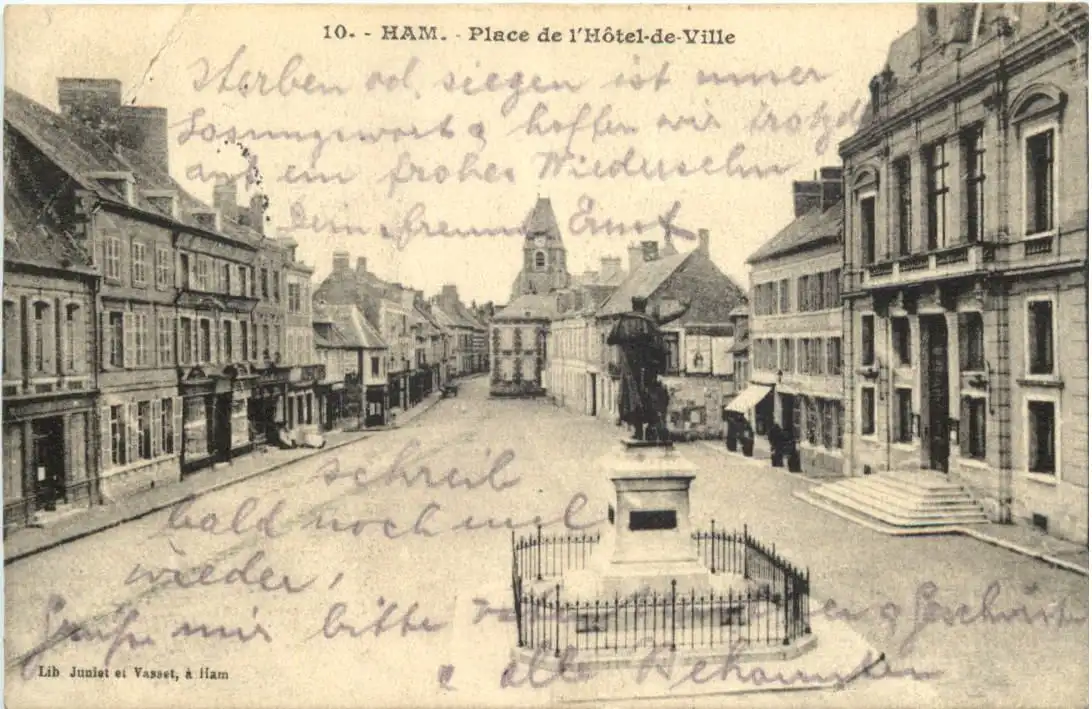 10. - HAM. - Place de l'Hôtel-de-Ville
Sterben od. siegen ist unser
Losungswort & hoffen wir trotzd
auf ein frohes Wiedersehn
Dein Freund Ernst
schreib
bald noch mal
wieder,
mir bitte Geschwister
& alle Bekannten
Lib Juniet et Vasset, à Ham